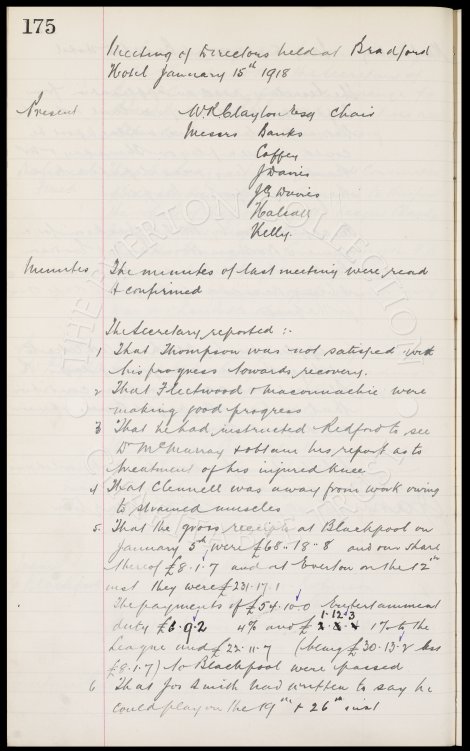 175
Meeting of Directors held at Bradford
Hotel January 15th 1918
Present W.R. Clayton Esq Chair
Messrs Banks
Coffey
J Davies
J.G. Davies
Halsall
Kelly.
Minutes The minutes of last meeting were read
& confirmed
The Secretary reported :-
1 That Thompson was not satisfied with
his progress towards recovery.
2 That Fleetwood & Maconnachie were
making good progress
3 That he had instructed Redford to see
Dr McMurray & obtain his report as to
treatment of his injured knee
4 That Clennell was away from work owing
to strained muscles
5 That the gross receipts at Blackpool on
January 5th were £68-18-8 and our share
thereof £8.1.7 and at Everton on the 12th
inst they were £231.17.1
The payments of £54.10.0 Entertainment
duty £6.9.2 4% and £ 1.12.3 1% to the
League and £22.11.7 (being £30.13.2 less
£8.1.7) to Blackpool were passed
6 That Jos Smith had written to say he
could play on the 19th & 26th inst
THE EVERTON COLLECTION